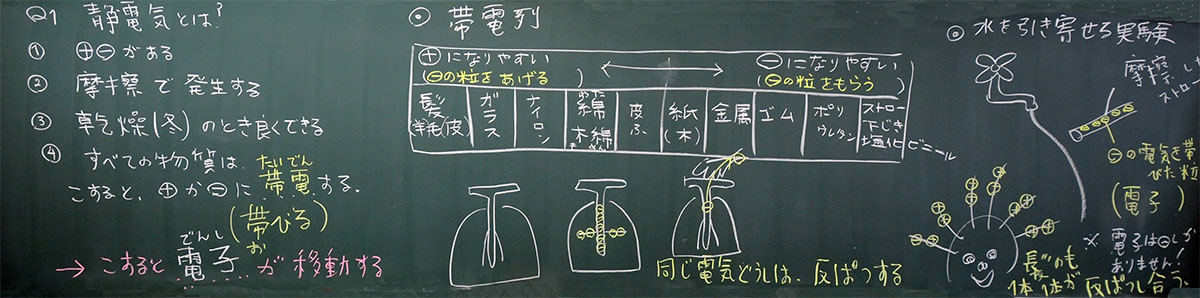 Q1 静電気とは?
① ⊕⊖がある
② 摩擦で発生する
③ 乾燥(冬)のとき良くできる
④ すべての物質は、
こすると、⊕か⊖に帯電する。
たいでん
(帯びる)
お
でんし
→ こすると電子が移動する
◎ 帯電列
⊕になりやすい
(⊖の粒をあげる)
⊖になりやすい
(⊖の粒をもらう)
髪 羊毛(皮)
ガラス
ナイロン
綿 木綿
わた
皮ふ
紙(木)
金属
ゴム
ポリウレタン
ストロー 下じき 塩化ビニール
同じ電気どうしは、反ぱつする
◎ 水を引き寄せる実験
摩擦した
ストロー
⊖の電気を帯
びた粒
(電子)
※ 電子は⊖しか
ありません!
髪のも
1体1体が 反ぱつし合う、